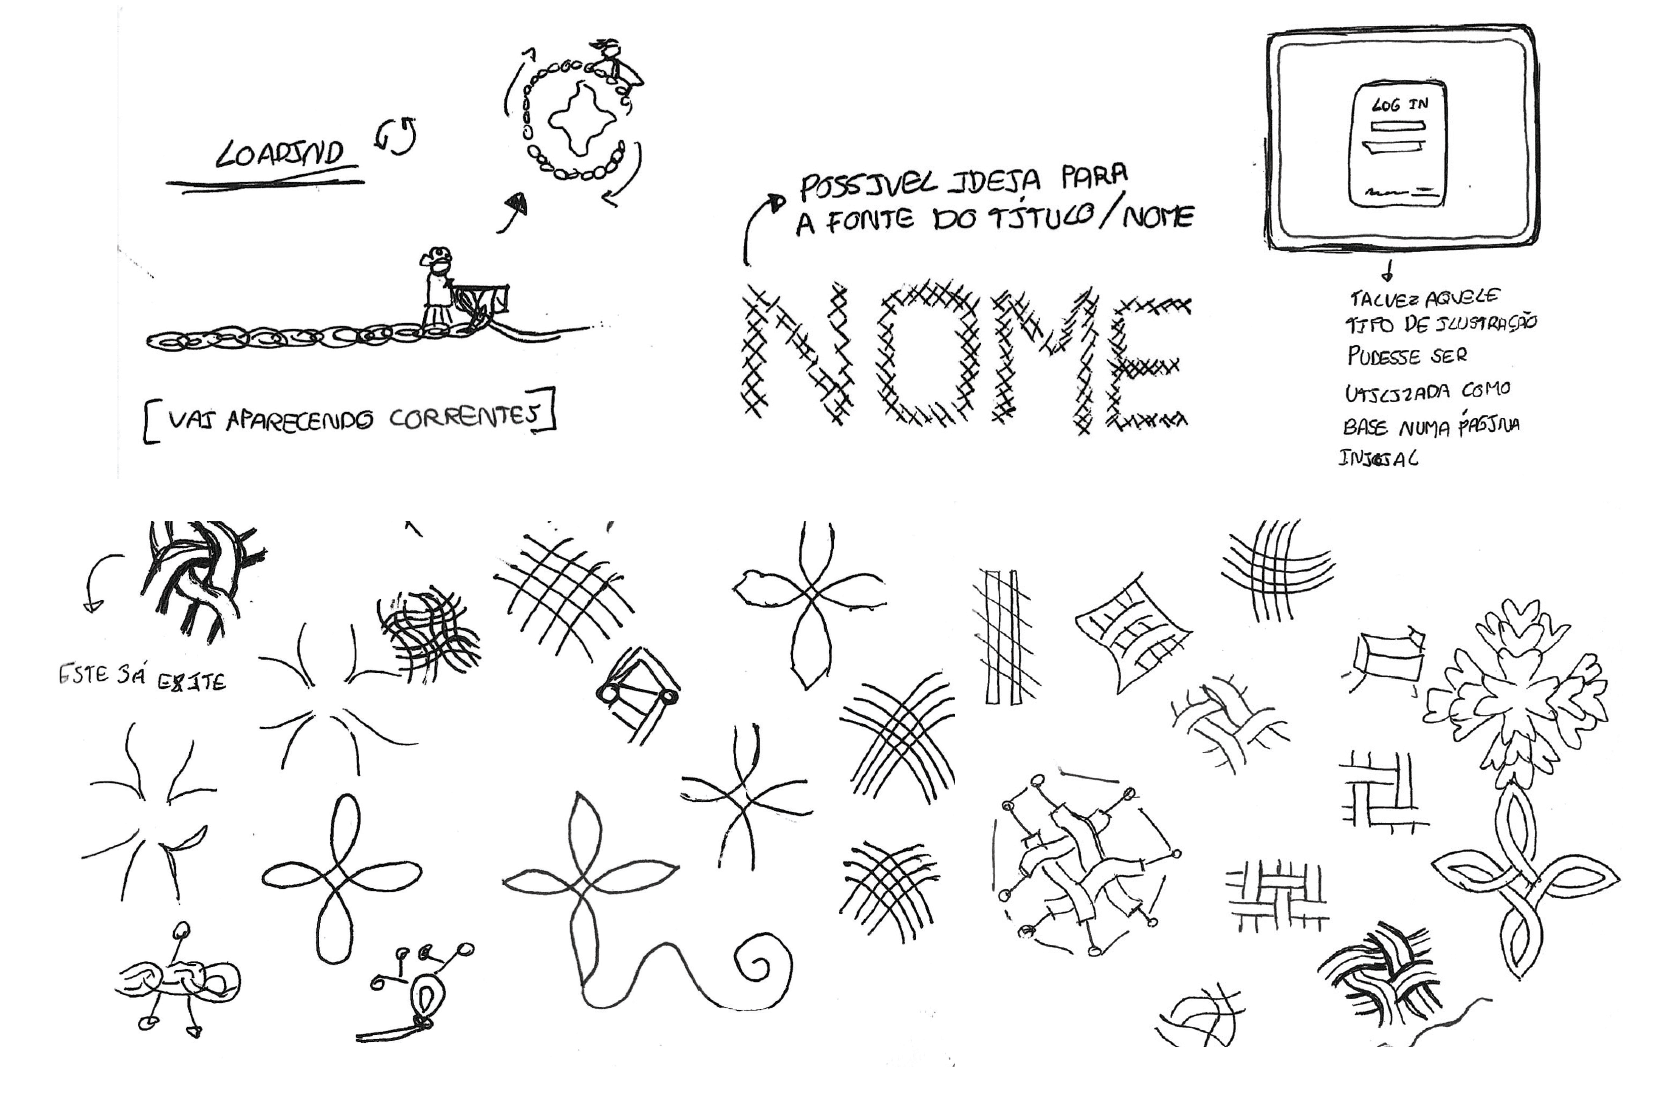 LOADIND
[VAI APARECENDO CORRENTES]
POSSIVEL IDEIA PARA
A FONTE DO TÍTULO/NOME
NOME
LOG IN
TALVEZ AQUELE
TIPO DE ILUSTRAÇÃO
PUDESSE SER
UTILIZADA COMO
BASE NUMA PÁGINA
INICIAL
ESTE JÁ EXITE